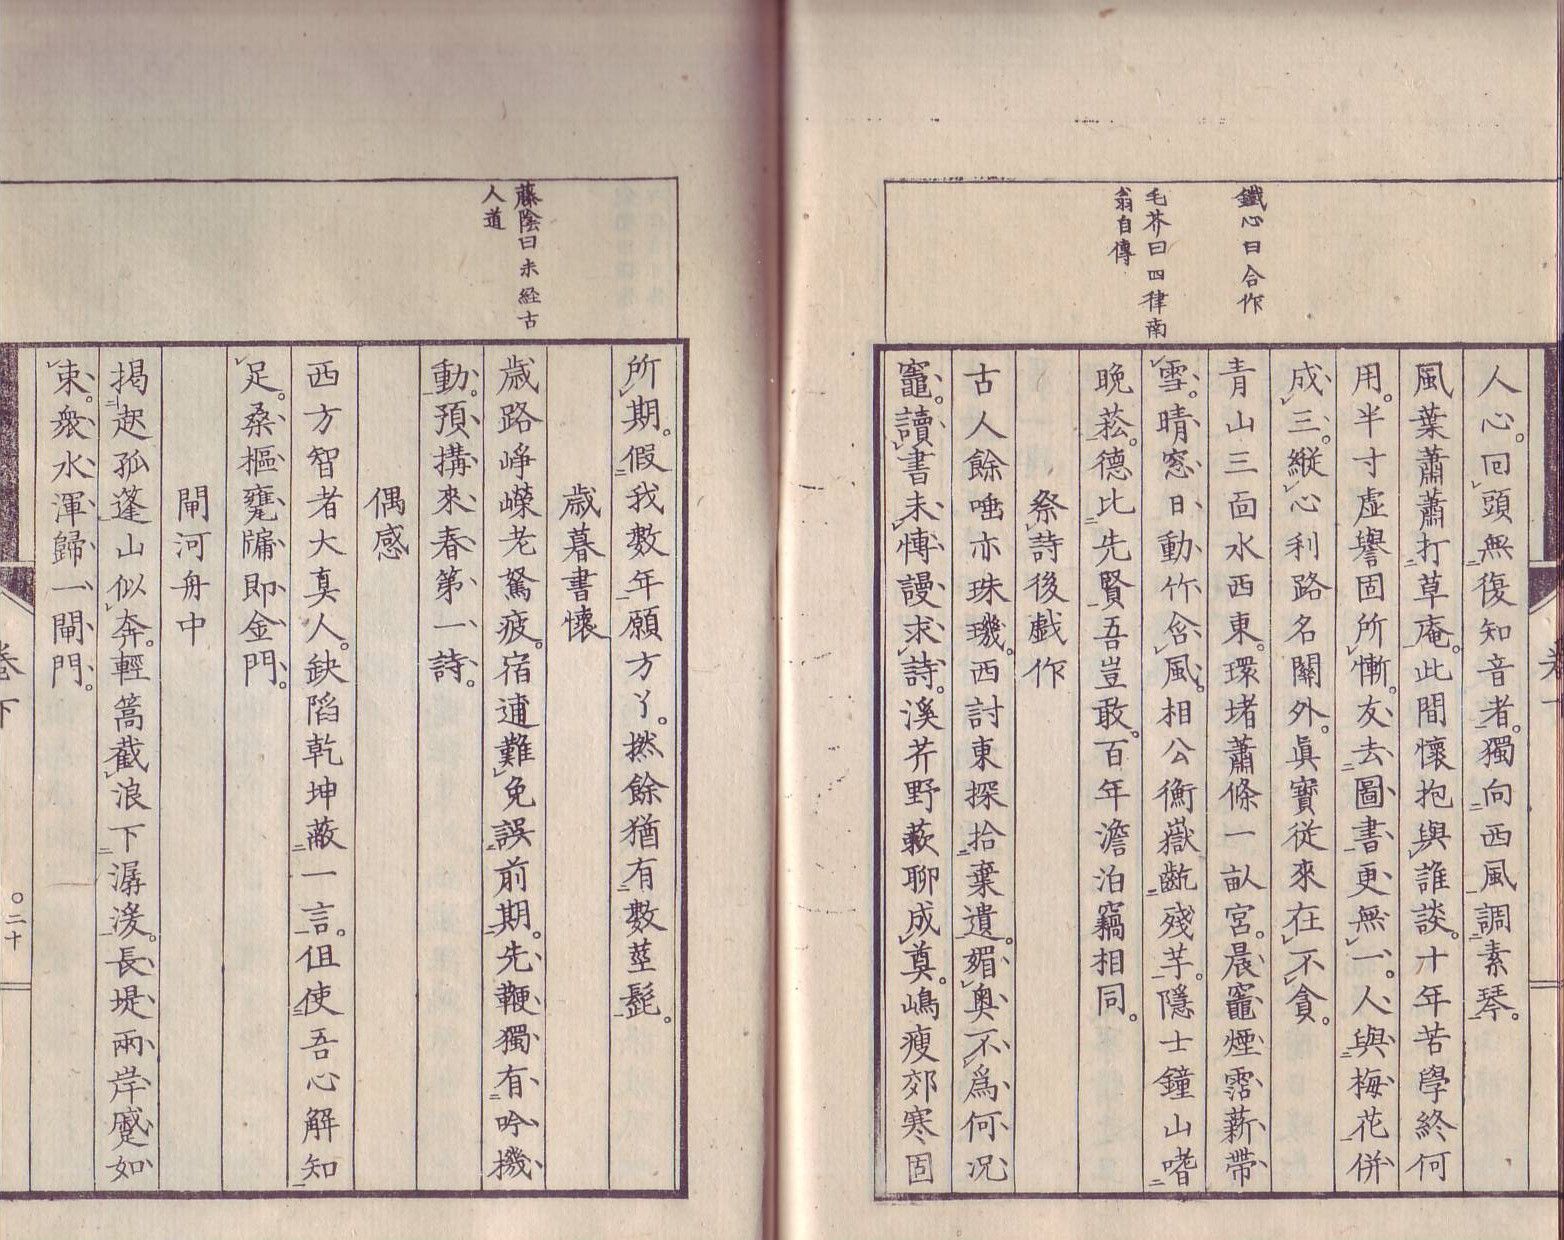 鐵心曰合作
毛芥曰四律南
翁自傳
人心。回頭無復知音者。獨向西風調素琴。
風葉蕭蕭打草庵。此間懷抱與誰談。十年苦學終何
用。半寸虛譽固所慚。友去圖書更無一。人與梅花併
成三。縱心利路名關外。眞寶從來在不貪。
青山三面水西東。環堵蕭條一畝宮。晨竈煙霑薪帶
雪。晴窓日動竹含風。相公衡嶽齕殘芋。隱士鐘山嗜
晚菘。德比先賢吾豈敢。百年澹泊竊相同。
祭詩後戯作
古人餘唾亦珠璣。西討東探拾棄遺。媚奧不爲何況
竈。讀書未慱謾求詩。溪芥野蔌聊成奠。嶋瘦郊寒固
卷下
藤陰曰未経古
人道
所期。假我數年願方了。撚餘猶有數莖髭。
歳暮書懷
歳路崢嶸老駑疲。宿逋難免誤前期。先鞭獨有吟機
動。預搆來春第一詩。
偶感
西方智者大真人。缺陷乾坤蔽一言。但使吾心解知
足。桑樞甕牖即金門。
閘河舟中
揭起孤蓬山似奔。輕篙截浪下潺湲。長堤兩岸蹙如
束。衆水渾歸一閘門。
卷下
〇二十